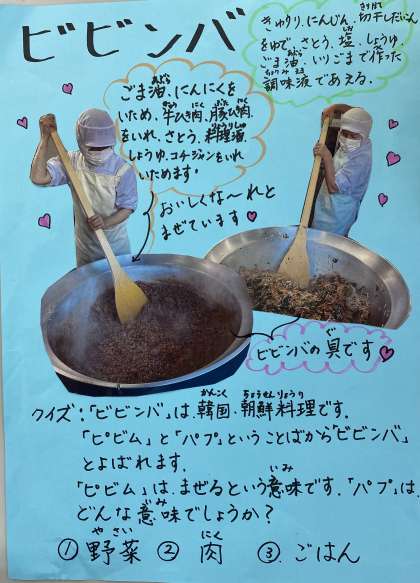 ビビンバ
きゅうり、にんじん、切干しだいこん
をゆで さとう、塩、しょうゆ
ごま油、いりごまで作った
調味液であえる。
ごま油、にんにくを
いため、牛ひき肉、豚ひき肉
をいれ、さとう、料理酒、
しょうゆ、コチジャンをいれ
いためます。
おいしくな〜れと
まぜています
ビビンバの具です
クイズ：「ビビンバ」は、韓国、朝鮮料理です。
「ピビム」と「パプ」ということばから「ビビンバ」
とよばれます。
「ピビム」は、まぜるという意味です。「パプ」は、
どんな意味でしょうか？
①野菜 ②肉 ③ごはん